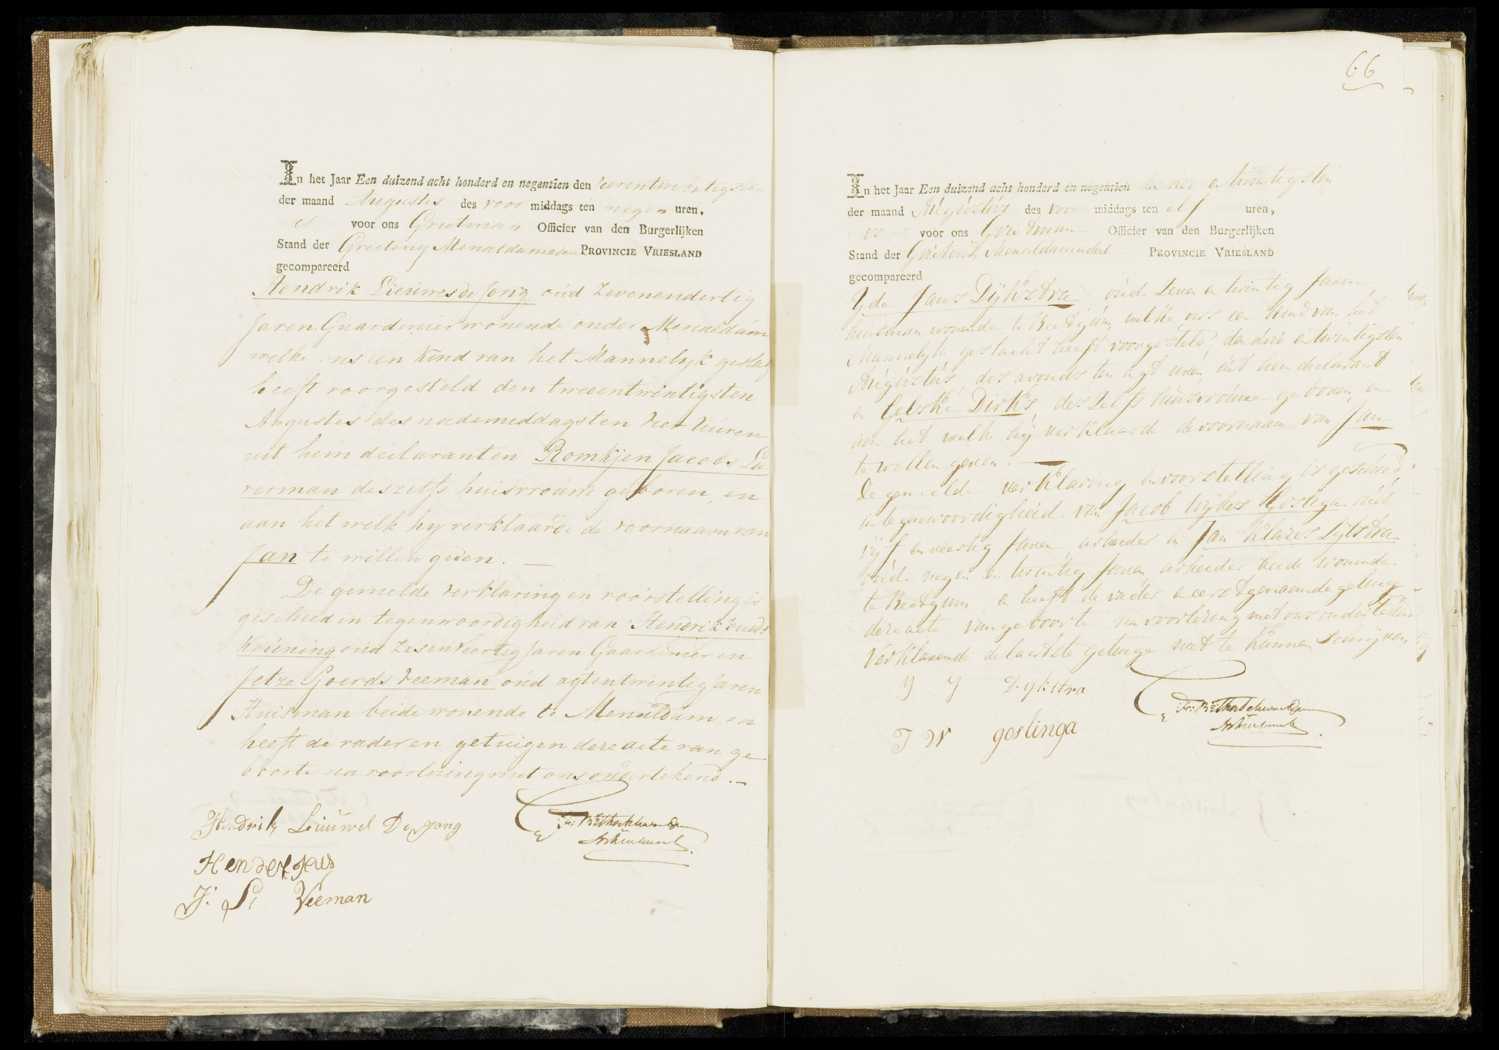 In het Jaar Een duizend acht honderd en negentien den
der maand Augustus des voor middags ten negen uren,
voor ons Grietman Officier van den Burgerlijken
Stand der Grieteny Menaldumadeel PROVINCIE VRIESLAND
gecompareerd
Hendrik Lieuwes de Jong oud Zevenendertig
Jaren Gaardenier wonende onder Menaldum
welke ons een Kind van het Mannelijk geslagt
heeft voorgesteld den tweeentwintigsten
Augustus des nademiddags ten vier uuren
uit hem declarant en Romkjen Jacobs
deszelfs huisvrouw geboren, en
aan het welk hy verklaarde de voornaam van
Jan te willen geven. —
De gemelde verklaring en voorstelling is
geschied in tegenwoordigheid van Hendrik
Koening oud Zesenveertig Jaren Gaardenier en
Jetze Sjoerds Veeman oud agtentwintig Jaren
Huisman beide wonende te Menaldum, en
heeft de vader en getuigen deze acte van ge
boorte na voorlezing met ons ondertekend. —
Hendrik Liuwes De Jong
J: S: Veeman
66
In het Jaar Een duizend acht honderd en negentien den en twintigsten
der maand Augustus des voor middags ten elf uren,
voor ons Grietman Officier van den Burgerlijken
Stand der Grieteny Menaldumadeel PROVINCIE VRIESLAND
gecompareerd
Yde Jans Dijkstra oud Zeven en twintig Jaren
wonende te Beetgum, welke ons een Kind van het
Mannelijk geslacht heeft voorgesteld, den drie en twintigsten
Augustus, des avonds ten agt uren, uit hem declarant
en Dirks, deszelfs huisvrouw geboren, en
aan het welk hij verklaarde de voornaam van Jan
te willen geven. —
De gemelde verklaring en voorstelling is geschied
in tegenwoordigheid van Jacob Wybes Goslinga oud
vijf en veertig Jaren arbeider en Jan Klazes Dijkstra
oud negen en twintig Jaren arbeider beide wonende
te Beetgum en heeft de vader en eerstgenoemde getuige
deze acte van geboorte na voorlezing met ons ondertekend
Verklarende de laatste getuige niet te kunnen schrijven
Y J Dykstra
J W goslinga